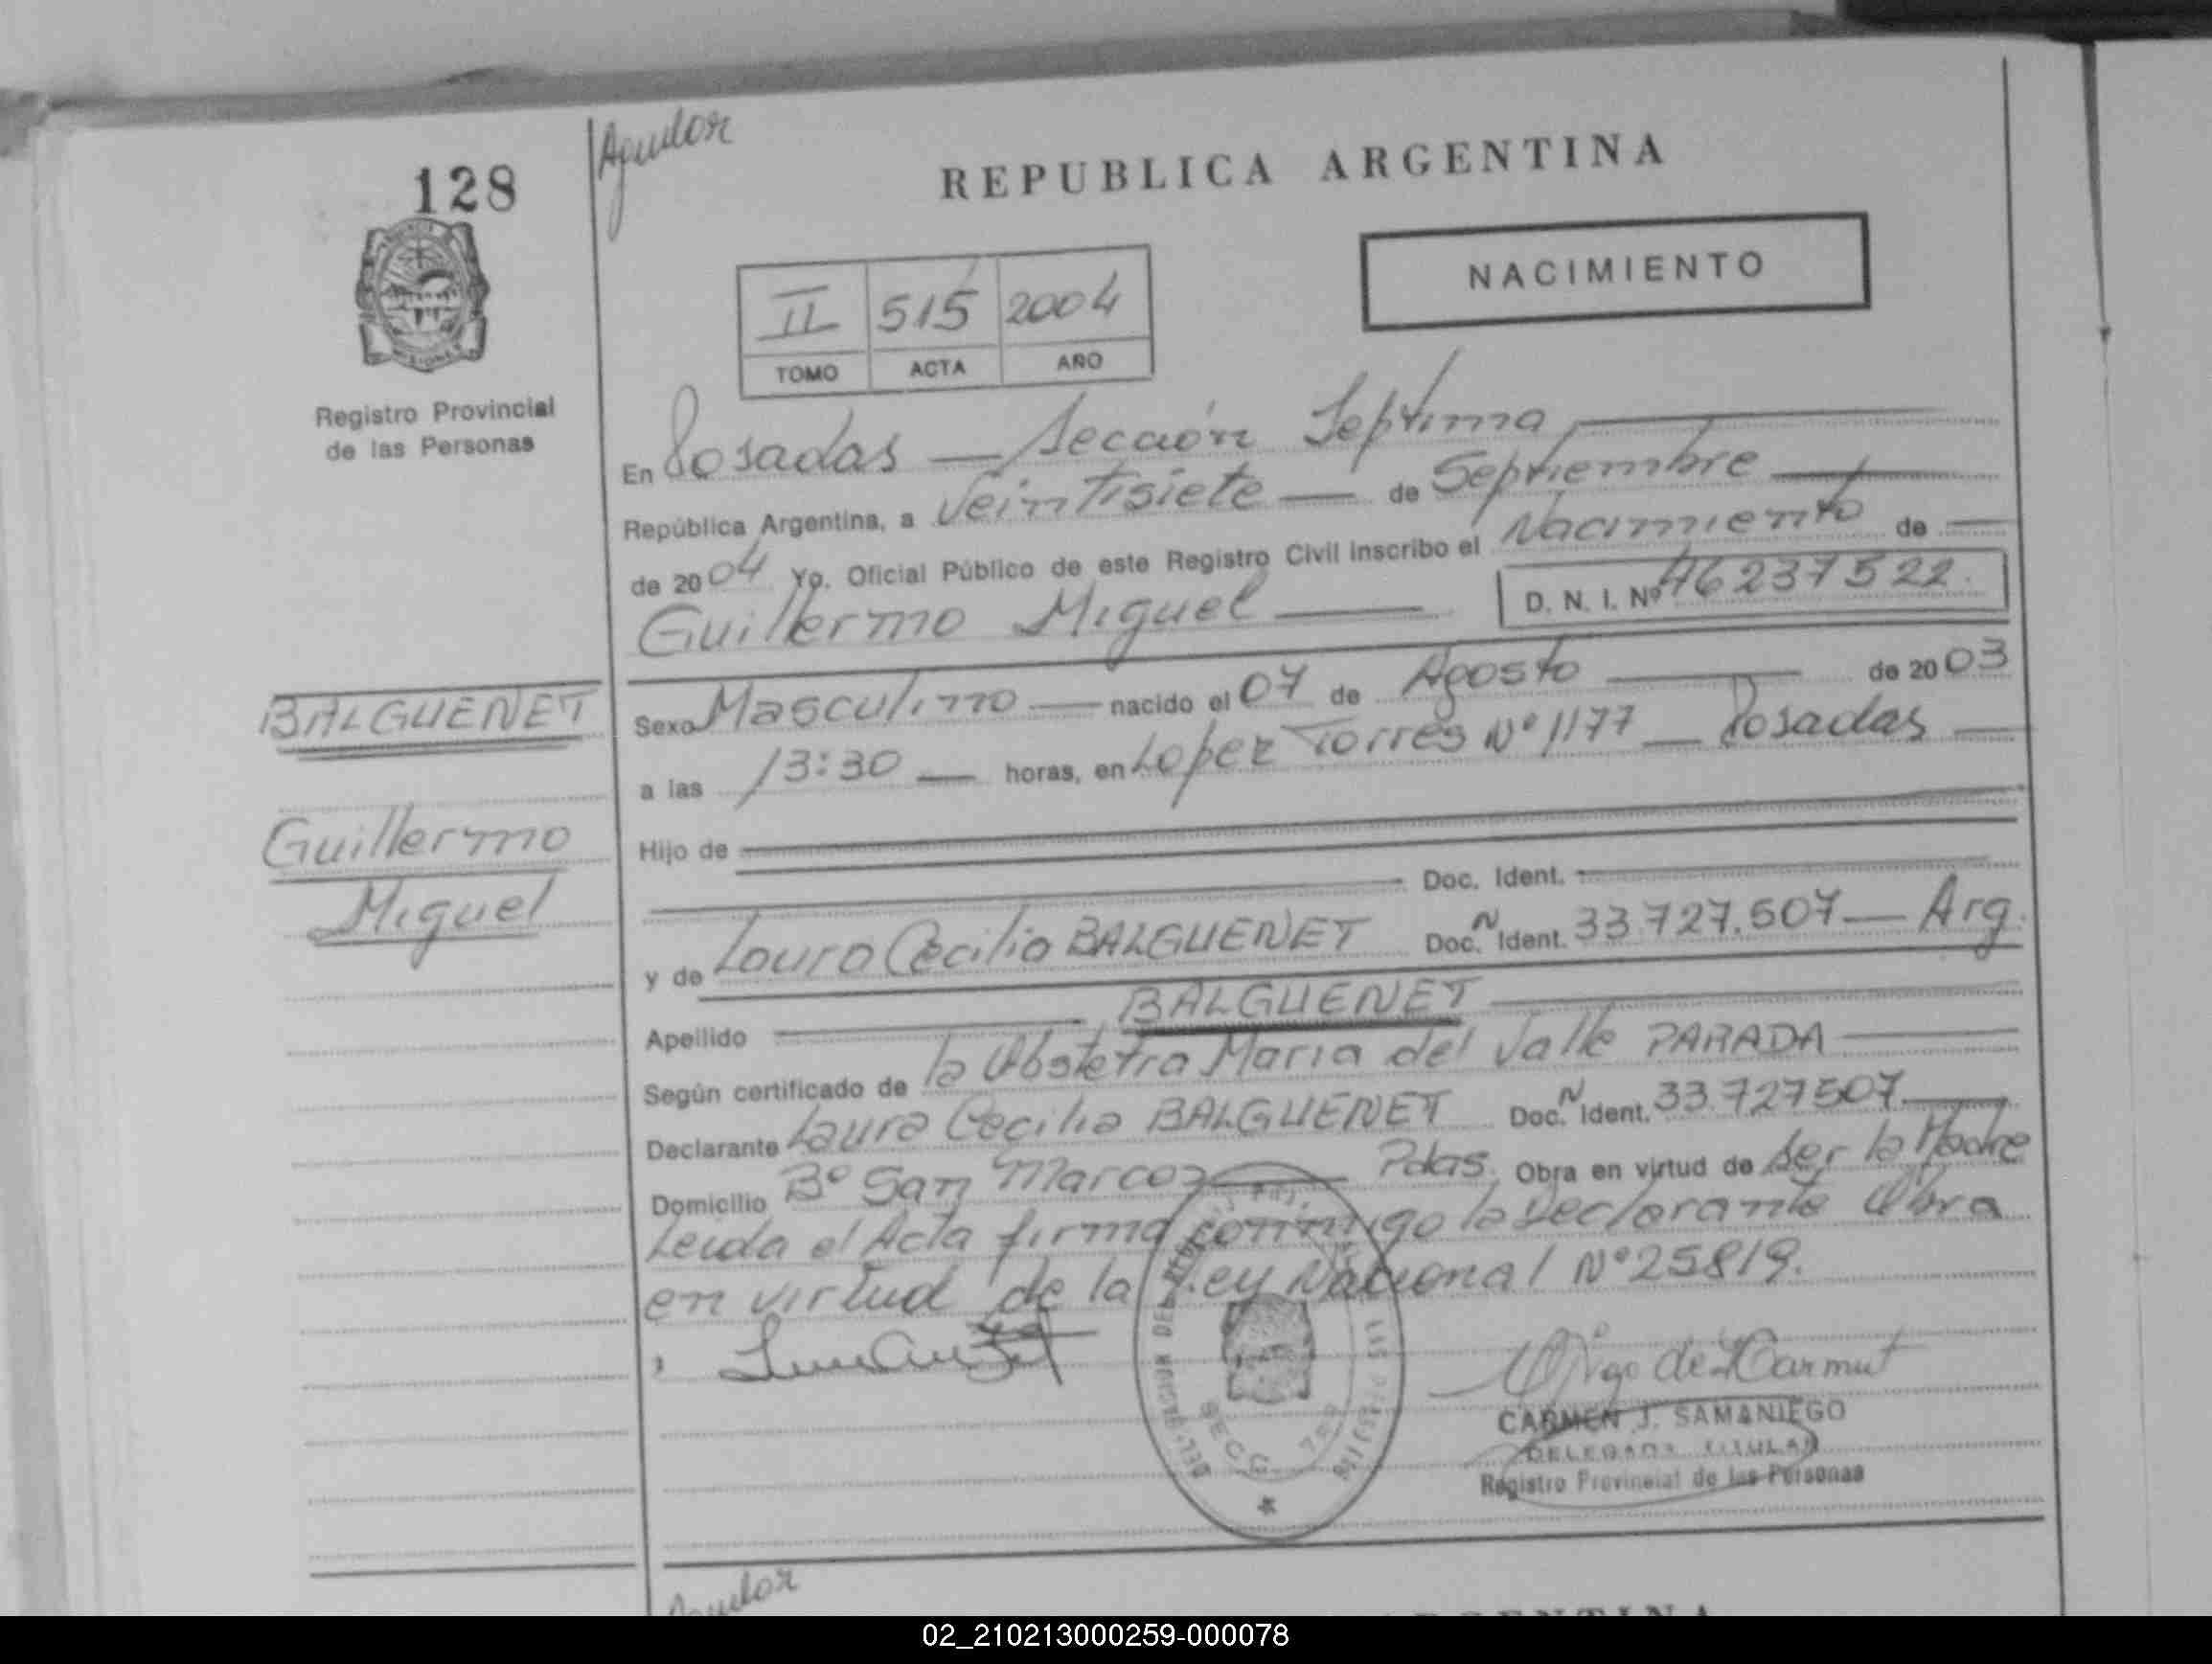 128
Aguilar
REPUBLICA ARGENTINA
NACIMIENTO
II 515 2004
TOMO ACTA AÑO
Registro Provincial
de las Personas
En Posadas — Sección Septima
República Argentina, a Veintisiete — de Septiembre
de 2004 Yo. Oficial Público de este Registro Civil inscribo el Nacimiento de
Guillermo Miguel D. N. I. Nº 46237522.
BALGUENET
Guillermo
Miguel
Sexo Masculino — nacido el 07 de Agosto de 2003
a las 13:30 — horas, en Lopez Torres Nº 1177 — Posadas
Hijo de
Doc. Ident.
y de Laura Cecilia BALGUENET Doc. N Ident. 33.727.507 — Arg.
Apellido BALGUENET
Según certificado de la Obstetra Maria del Valle PARADA
Declarante Laura Cecilia BALGUENET Doc. N Ident. 33.727507.
Domicilio Bº San Marcos Pdas. Obra en virtud de ser la Madre
Leida el Acta firma conmigo la Declarante Obra
en virtud de la Ley Nacional Nº 25819.
CARMEN J. SAMANIEGO
DELEGADA TITULAR
Registro Provincial de las Personas
Aguilar
ARGENTINA
02_210213000259-000078